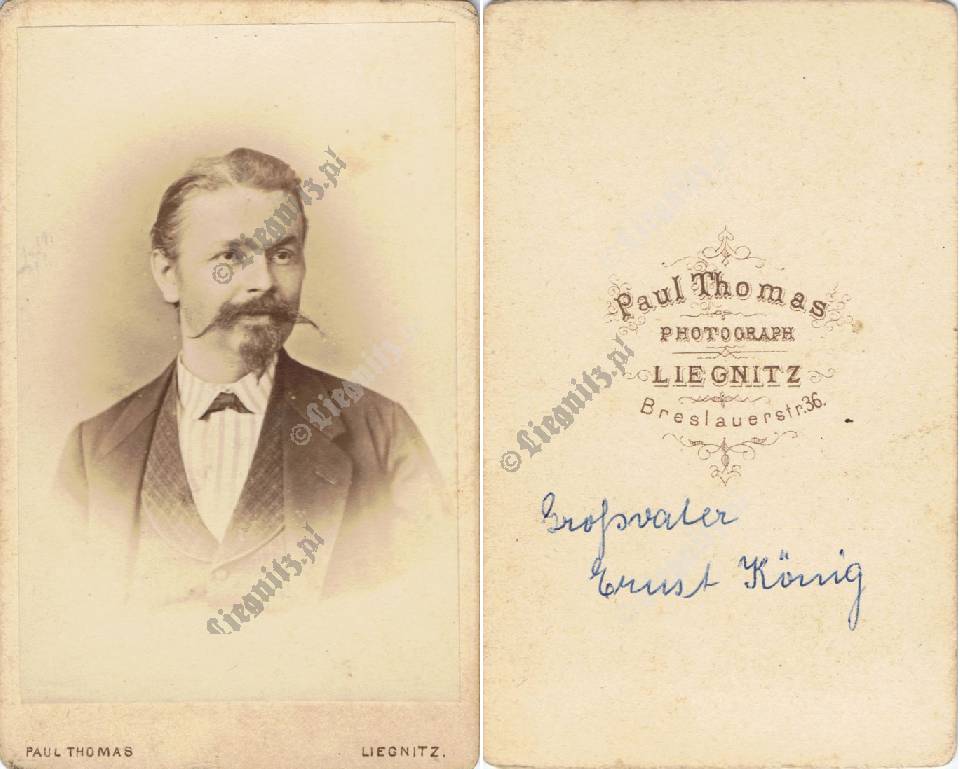 © Liegnitz.pl
© Liegnitz.pl
Liegnitz.pl
PAUL THOMAS LIEGNITZ.
Paul Thomas
PHOTOGRAPH
LIEGNITZ
Breslauerstr.36.
© Liegnitz.pl
Großvater
Ernst König